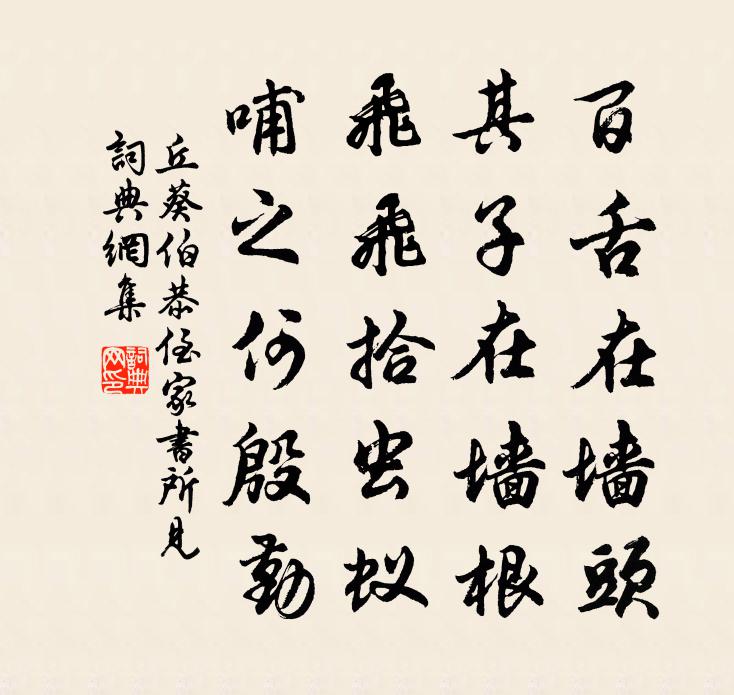 百舌在墙頭
其子在墙根
飛飛拾虫蚁
哺之何殷勤
丘葵伯恭侄家書所見
詞典網集
詞典网印